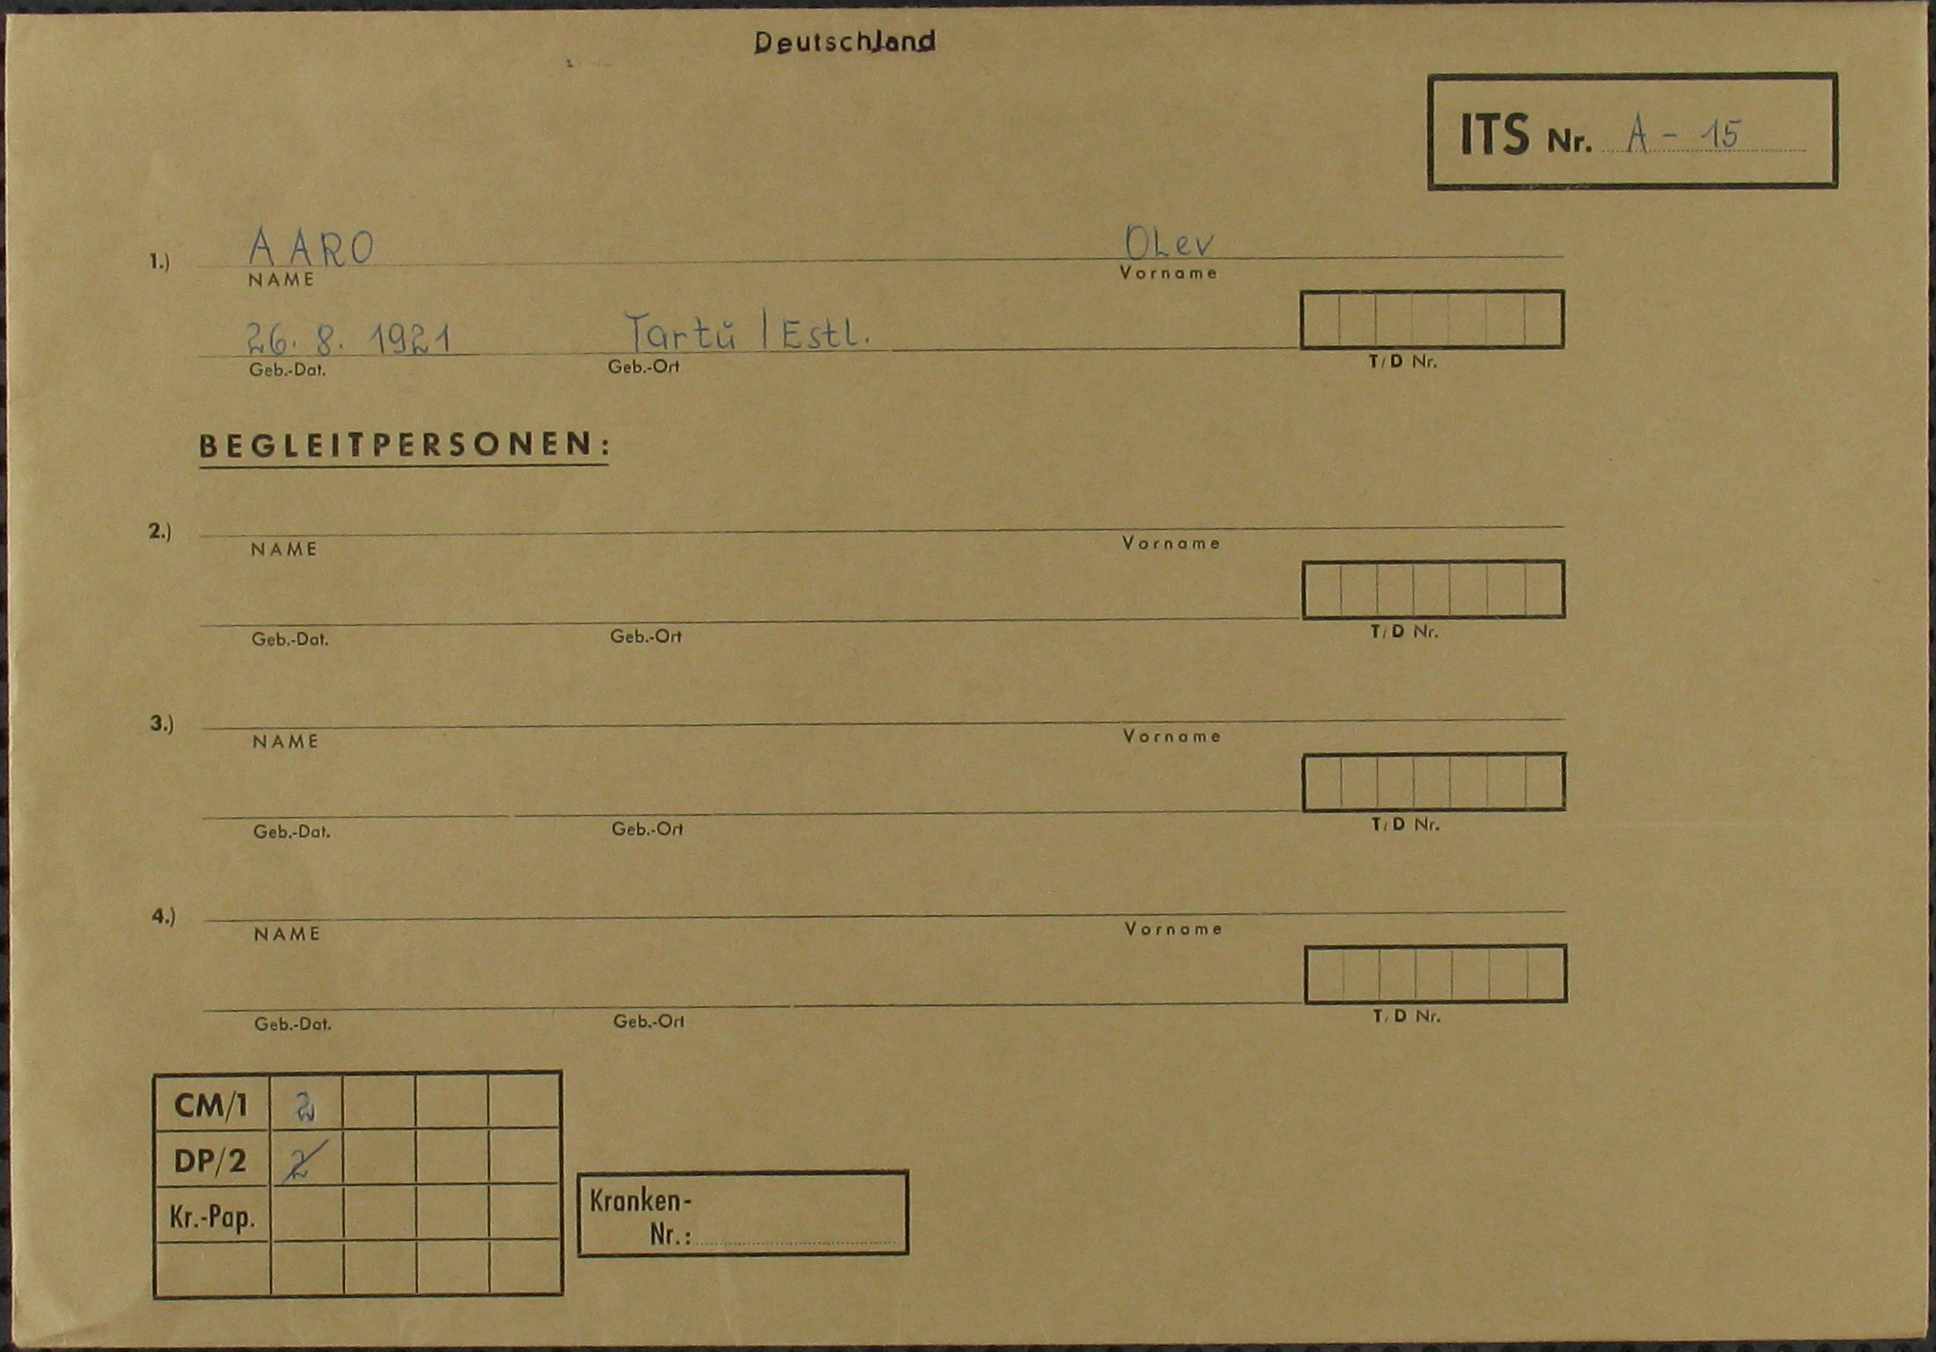 Deutschland
ITS Nr. A - 15
1.) AARO OLev
NAME Vorname
26. 8. 1921 Tartŭ / Estl.
Geb.-Dat. Geb.-Ort T/D Nr.
BEGLEITPERSONEN:
2.)
NAME Vorname
Geb.-Dat. Geb.-Ort T/D Nr.
3.)
NAME Vorname
Geb.-Dat. Geb.-Ort T/D Nr.
4.)
NAME Vorname
Geb.-Dat. Geb.-Ort T/D Nr.
CM/1 2
DP/2 2
Kr.-Pap.
Kranken-
Nr.: